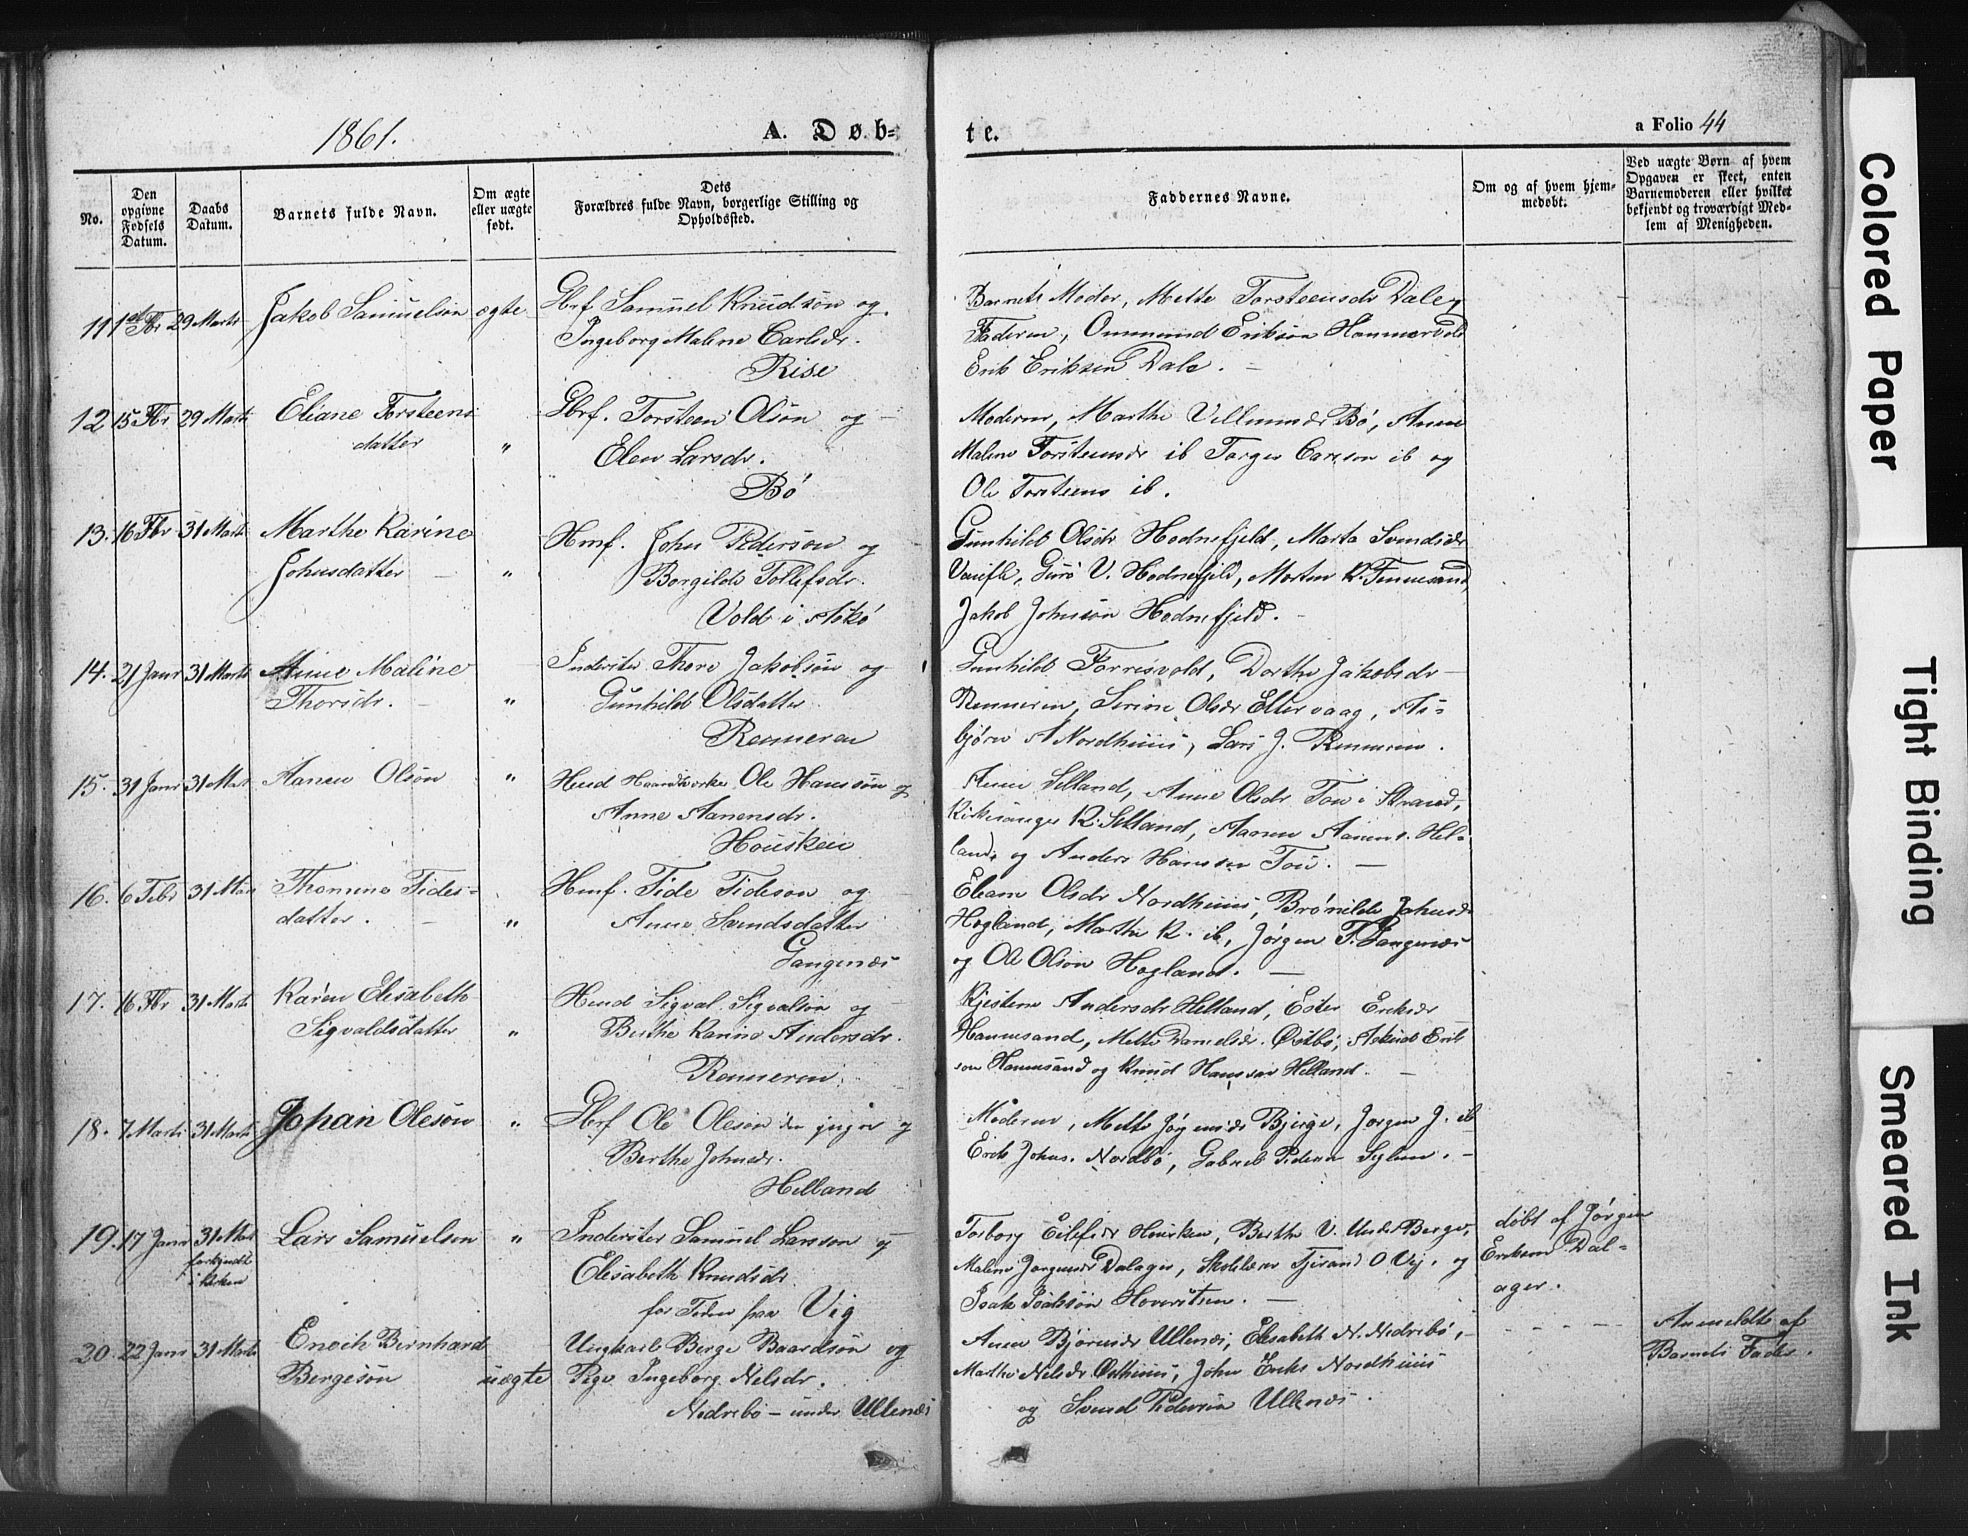 1861.
A. Døb-
te.
a Folio 44
No.
Den opgivne Fødsels Datum.
Daabs Datum.
Barnets fulde Navn.
Om ægte eller uægte født.
Dets Forældres fulde Navn, borgerlige Stilling og Opholdssted.
Faddernes Navne.
Om og af hvem hjemmedøbt.
Ved uægte Børn af hvem Opgaven er skeet, enten Barnemoderen eller hvilket bekjendt og troværdigt Medlem af Menigheden.
11 1st Fbr 29 Marts Jakob Samuelson ægte Gbrf Samuel Knudsøn og
Ingeborg Malene Carlsdr.
Rise
Barnets Moder, Mette Torsteensdr Dale,
Faderen, Ommund Eriksøn Hammersvold
Erik Eriksen Dale. —
12 15 Fbr 29 Marts Eliane Torsteens
datter " Gbrf. Torsteen Olsøn og
Elen Larsdr.
Bø
Moderen, Marthe Villumsdr Bø, Anne
Malene Torsteensdr ib Torger Carlson ib og
Ole Torsteens ib.
13. 16 Fbr 31 Marts Marthe Karine
Johnsdatter — " Hmf. John Pederson og
Borgilde Tollefsdr.
Vold i Askø
Gunhild Olsdr Hodnefjeld, Marta Svendsdr
Gurø V. Hodnefjeld, Morten K.
Jakob Johnsøn Hodnefjeld. —
14. 21 Janr 31 Marts Anne Maline
Thorsdr. — " Inderster Thore Jakobsøn og
Gunhild Olsdatter
Renneren
Gunhild Dorthe Jakobsdr —
Renneren, Serine Olsdr Eltervaag, As-
bjørn A Nordhuus, Lars J. Renneren.
15. 31 Janr 31 Mar Aanen Olsøn " Huud Haandverker Ole Hanssøn og
Anne Aanensdr.
Housken
Anne Selland, Anne Olsdr Tou i Strand,
Kirkesanger K. Selland, Aanen Aanens. Hel-
land, og Anders Hanssen Tou. —
16. 6 Febr 31 Mar Thomine Tides-
datter. — " Hmf. Tide Tideson og
Anne Svendsdatter
Gangenæs
Eleane Olsdr Nordhuus, Brønilde Johnsdr
Hogland, Marthe K. ib, Jørgen T. Gangenæs
og Ole Olson Hogland. —
17. 16 Fbr 31 Marts Karen Elisabeth
Sigvaldsdatter " Huud Sigval Sigvalson og
Berthe Karine Andersdr.
Renneren.
Kjestene Andersdr Helland, Ester Eriksdr
Hanesand, Mette Danielsdr. Østbø, Eriks
son Hanesand og Knud Hanssøn Helland. —
18. 7 Marts 31 Marts Johan Olesøn " Gbrf Ole Oleson den yngre og
Berthe Johnsdr.
Helland
Moderen, Mette Jørgensdr Bjerge, Jørgen J. ib
Erik Johns. Nordbø, Gabriel Pedersen —
19. 17 Janr 31 Mar
forkyndt
i Kirken
Lars Samuelson " Inderster Samuel Larsson og
Elesabeth Knudsdr
for Tiden paa Vig
Torborg Eilefsdr Housken, Berthe V.
Malene Jørgensdr Dalager, Skolelærer Tjerand O Vig, og
Isak Isaksøn —
døbt af Jørgen
Eriksen Dal-
ager.
20. 22 Janr 31 Marts Enoch Bernhard
Bergesøn uægte Ungkarl Berge Baardsøn og
Pige Ingeborg Nelsdr.
Nedrebø — under Ullenæs
Anna Bjørnsdr Ullenæs, Elesabeth N. Nedrebø, —
Marthe Nelsdr Østhuus, John Eriks Nordhuus
og Svend Pedersen Ullenæs.
- - - - -
Anmeldte af
Barnets Fader.
Colored Paper
Tight Binding
Smeared Ink